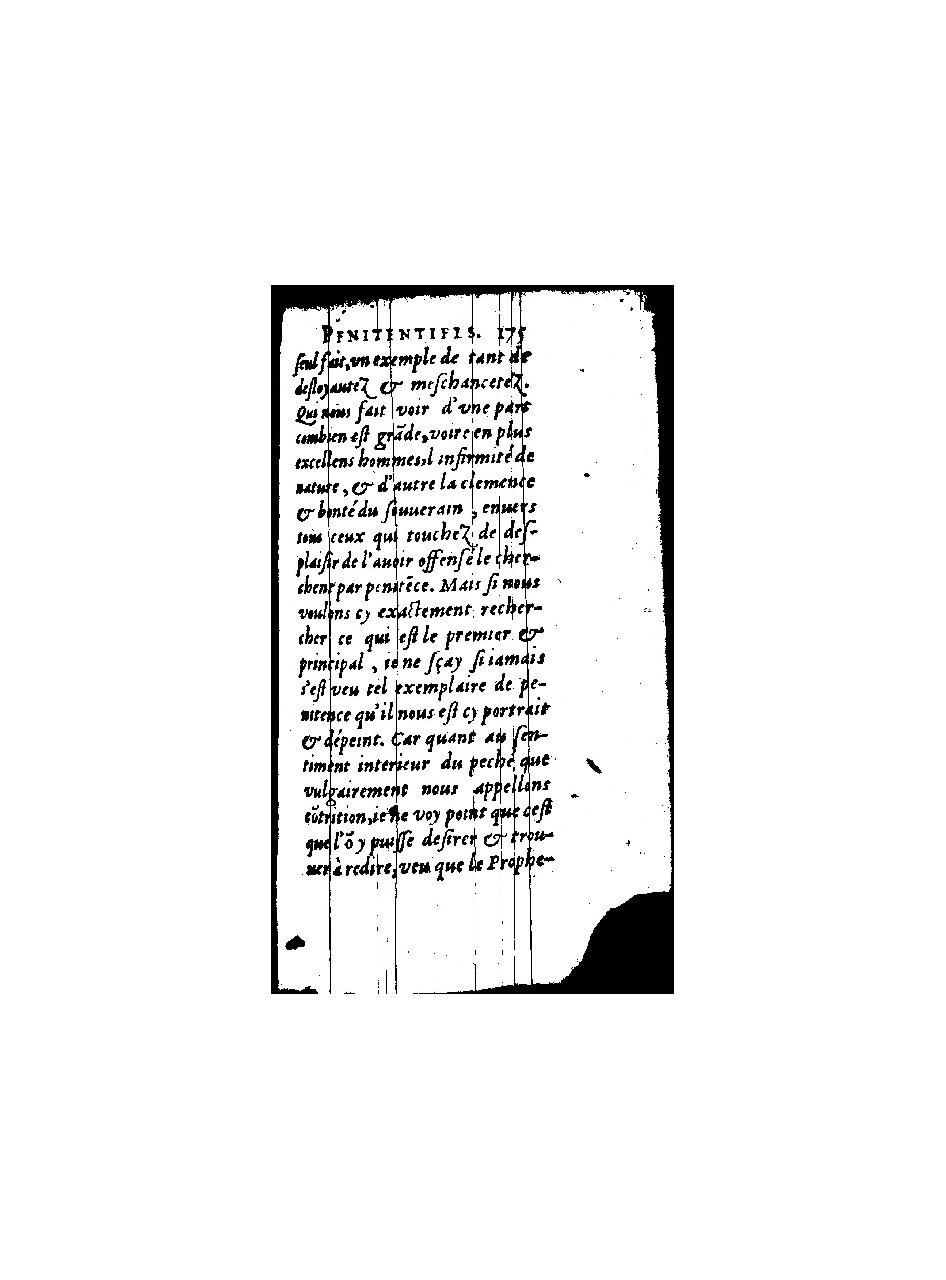 PENITENTIELS. 175
ſeul fait, vn exemple de tant de
desloyautez & meſchancetez.
Qui nous fait voir d'vne part
combien eſt grãde, voire en plus
excellens hommes, l infirmité de
nature, & d'autre la clemence
& bonté du ſouuerain, enuers
tous ceux qui touchez de deſ-
plaiſir de l'auoir offenſé le cher-
chent par penitẽce. Mais ſi nous
voulons cy exactement recher-
cher ce qui eſt le premier &
principal, ie ne ſçay ſi iamais
s'eſt veu tel exemplaire de pe-
nitence qu'il nous eſt cy portrait
& dépeint. Car quant au ſen-
timent interieur du peché que
vulgairement nous appellons
cõtrition, ie ne voy point que c'eſt
que l'õ y puiſſe deſirer & trou-
uer à redire, veu que le Prophe-